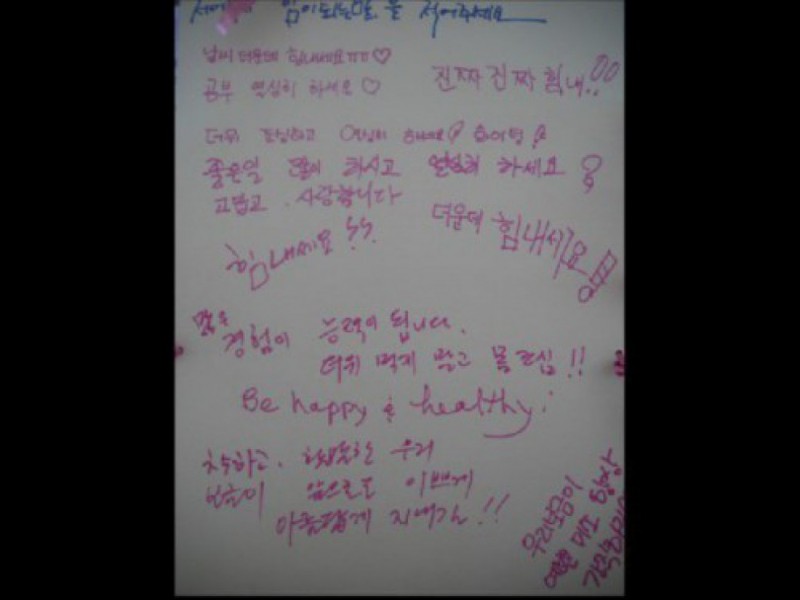 힘이되는말을 적어주세요
날씨 더운데 힘내세요ㅠㅠ♡
공부 열심히 하세요♡
진짜 진짜 힘내!!
더위 조심하고
좋은일 많이 하시고 열심히 하세요
고맙고, 사랑합니다
힘내세요!!
더운데 힘내서요!!
많은
경험이 능력이 됩니다.
더위 먹지 말고 몸조심!!
Be happy & healthy!
착하고, 우리
앞으로도 이쁘게
아름답게 지내길!!
우리
항상